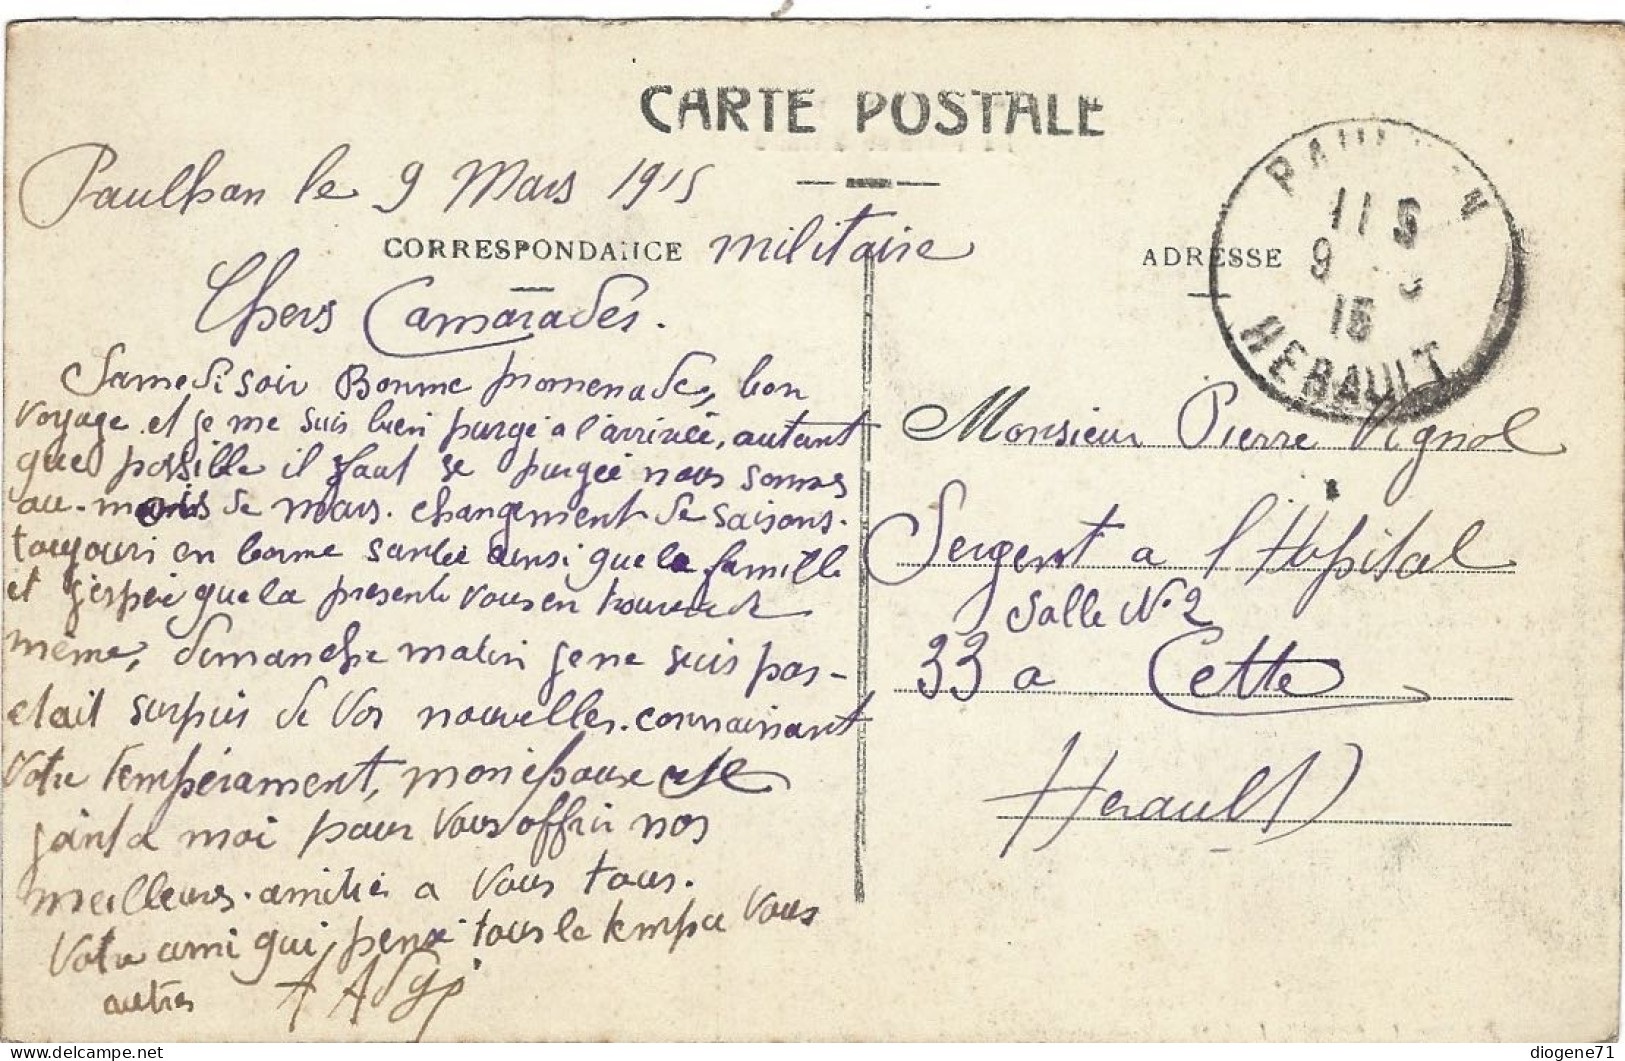 CARTE POSTALE
Paulhan le 9 Mars 1915
CORRESPONDANCE militaire
Chers Camarades.
Samedi soir Bonne promenade, bon
voyage et je me suis bien purgé a l'arrivée, autant
que possible il faut se purgée nous sommes
au mois de mars. changement de saisons.
toujours en bonne santée ainsi que la famille
et j'espére que la presente vous en trouvera de
même, dimanche matin je ne suis pas
etait surpris de vos nouvelles. connaissant
votre temperament, mon epouse se
joint a moi pour vous offrir nos
meilleures amitiés a vous tous.
Votre ami qui pense tous le temps a vous
autres
ADRESSE
PAULHAN
11 5
9 3
15
HERAULT
Monsieur Pierre Vignol
Sergent a l'Hopital
Salle N° 2
33 a Cette
Herault
diogene71